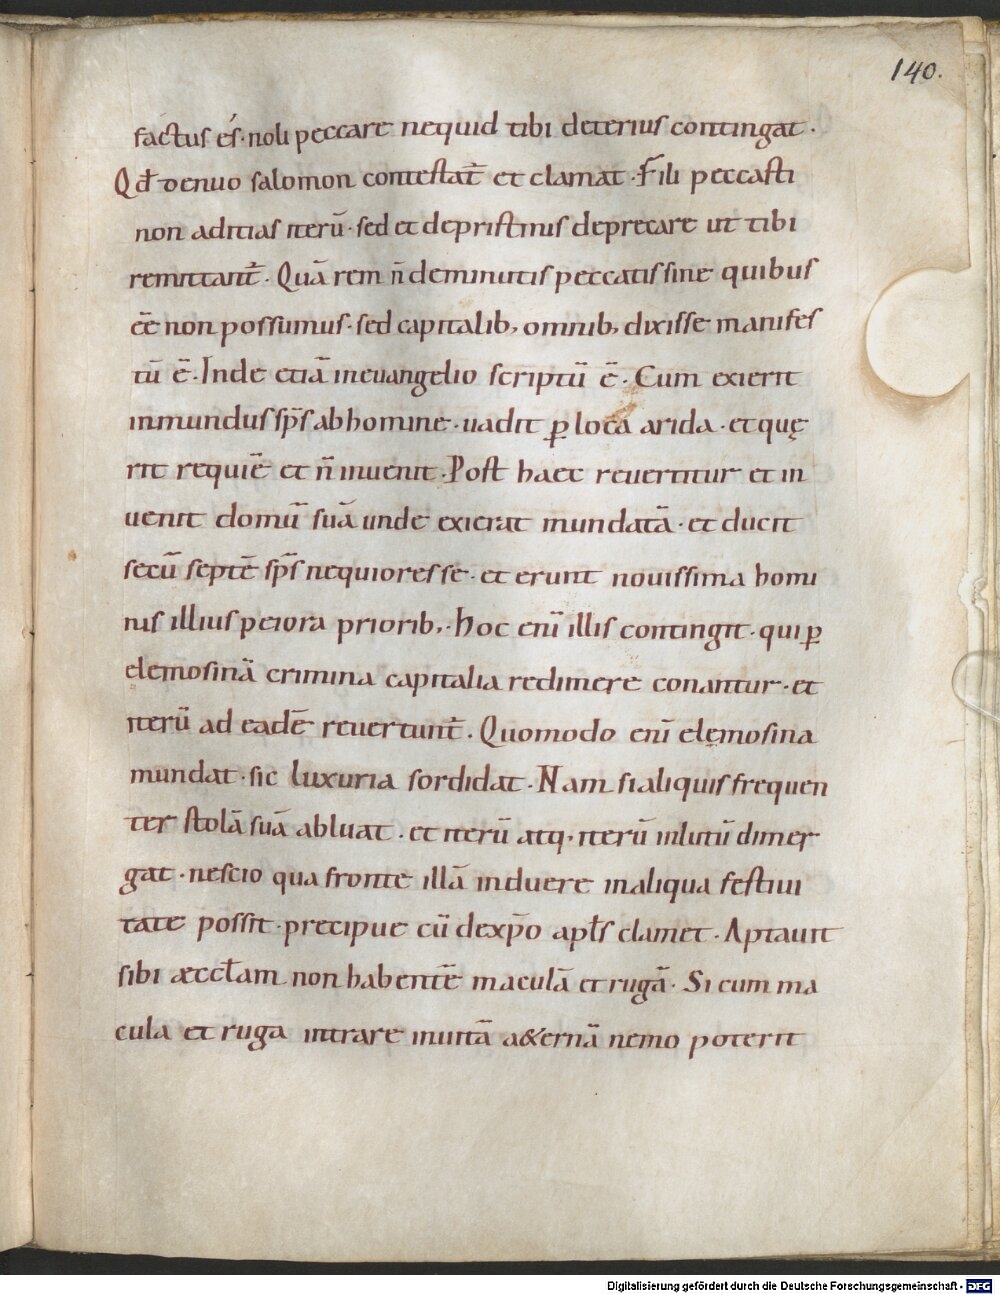 140.
factus és· noli peccare nequid tibi deterius contingat·
Qđ denuo salomon contestat̄ et clamat· Fili peccasti
non adicias iterū· sed et depristinis deprecare ut tibi
remittant̄· Quā rem n̄ deminutis peccatis sine quibus
ēē non possumus· sed capitalib; omnib; dixisse manifes
tū ē· Inde etiā ineuangelio scriptū ē· Cum exierit
inmundus sp̄s ab homine· uadit ꝑ loca arida· et quę
rit requiē et n̄ inuenit· Post haec reuertitur et in
uenit domū suā unde exierat mundatā· et ducit
secū septē sp̄s nequiores se· et erunt nouissima homi
nis illius peiora priorib;· hoc enī illis contingit· qui ꝑ
elemosinā crimina capitalia redimere conantur· et
iterū ad eadē reuertunt̄· Quomodo enī elęmosina
mundat· sic luxuria sordidat· Nam si aliquis frequen
ter stolā suā abluat· et iterū atq· iterū inlutū dimer
gat· nescio qua fronte illā induere inaliqua festiui
tate possit· precipue cū dexp̄o apl̄s clamet· Aptauit
sibi æccl̄am non habentē maculā et rugā· Si cum ma
cula et ruga intrare inuitā a&ernā nemo poterit
Digitalisierung gefördert durch die Deutsche Forschungsgemeinschaft - DFG